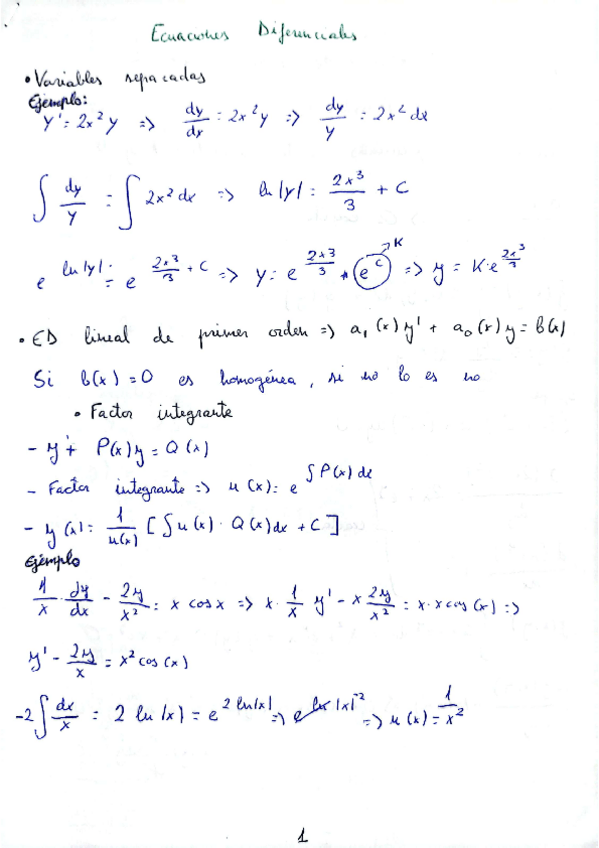 Ecuaciones Diferenciales
• Variables separadas
Ejemplo:
y' = 2x²y => dy/dx = 2x²y => dy/y = 2x²dx
∫ dy/y = ∫ 2x²dx => ln|y| = 2x³/3 + C
e^(ln|y|) = e^(2x³/3 + C) => y = e^(2x³/3) * e^C → K => y = K·e^(2x³/3)
• ED lineal de primer orden => a₁(x)y' + a₀(x)y = b(x)
Si b(x) = 0 es homogénea, si no lo es no
• Factor integrante
- y' + P(x)y = Q(x)
- Factor integrante => u(x) = e^(∫P(x)dx)
- y(x) = 1/u(x) [∫u(x)·Q(x)dx + C]
Ejemplo
1/x · dy/dx - 2y/x² = x cosx => x · 1/x y' - x 2y/x² = x·x cos(x) =>
y' - 2y/x = x² cos(x)
-2∫dx/x = 2 ln|x| = e^(2 ln|x|) => e^(ln|x|^-2) => u(x) = 1/x²
1